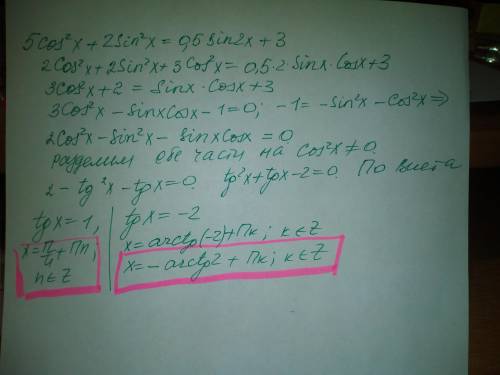 5cos²x + 2sin²x = 0,5sin2x + 3
2cos²x + 2sin²x + 3cos²x = 0,5·2·sinx·cosx+3
3cos²x + 2 = sinx·cosx + 3
3cos²x - sinxcosx - 1 = 0; -1 = -sin²x - cos²x ⇒
2cos²x - sin²x - sinxcosx = 0
разделим обе части на cos²x ≠ 0
2 - tg²x - tgx = 0. tg²x + tgx - 2 = 0. По Виета
tgx = 1,
x = π/4 + πn;
n ∈ Z
tgx = -2
x = arctg(-2) + πk; k ∈ Z
x = -arctg2 + πk; k ∈ Z